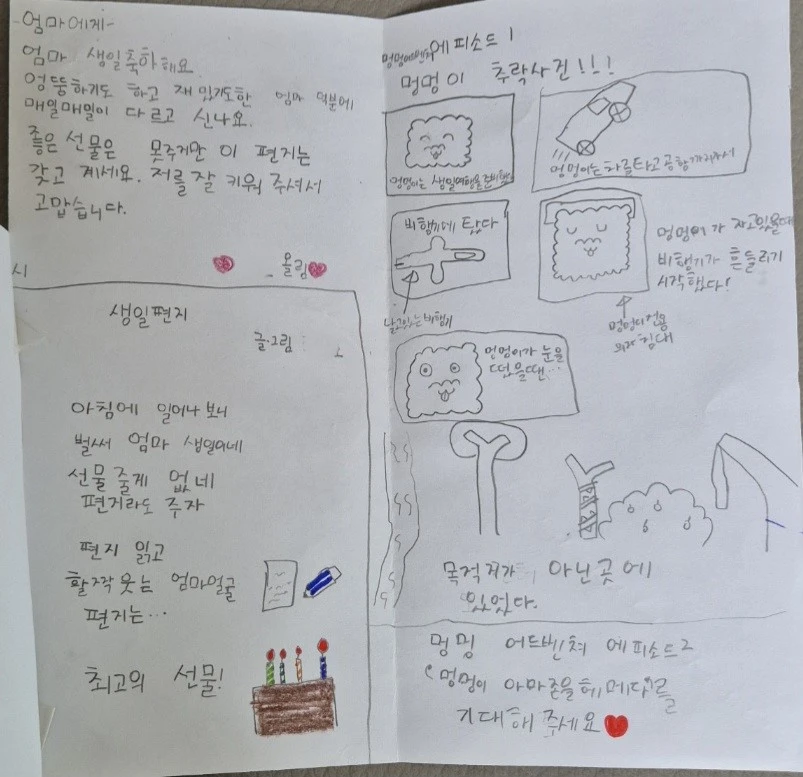 -엄마에게-
엄마 생일축하해요
엉뚱하기도 하고 재밌기도한 엄마 덕분에
매일매일이 다르고 신나요.
좋은 선물은 못주지만 이 편지는
갖고 계세요. 저를 잘 키워 주셔서
고맙습니다.
올림
시
생일편지
글·그림
아침에 일어나 보니
벌써 엄마 생일이네
선물 줄게 없네
편지라도 주자
편지 읽고
활짝 웃는 엄마얼굴
편지는…
최고의 선물!
에피소드 1
멍멍이 추락사건!!!
멍멍이는 생일여행을 준비했다
멍멍이는 차를 타고 공항까지가서
비행기에 탔다
날고있는 비행기
멍멍이가 자고있을때
비행기가 흔들리기
시작했다!
멍멍이전용
의자 침대
멍멍이가 눈을
떴을땐…
목적지가 아닌곳에
있었다.
멍멍 어드벤쳐 에피소드2
멍멍이 아마존을 헤메다를
기대해 주세요